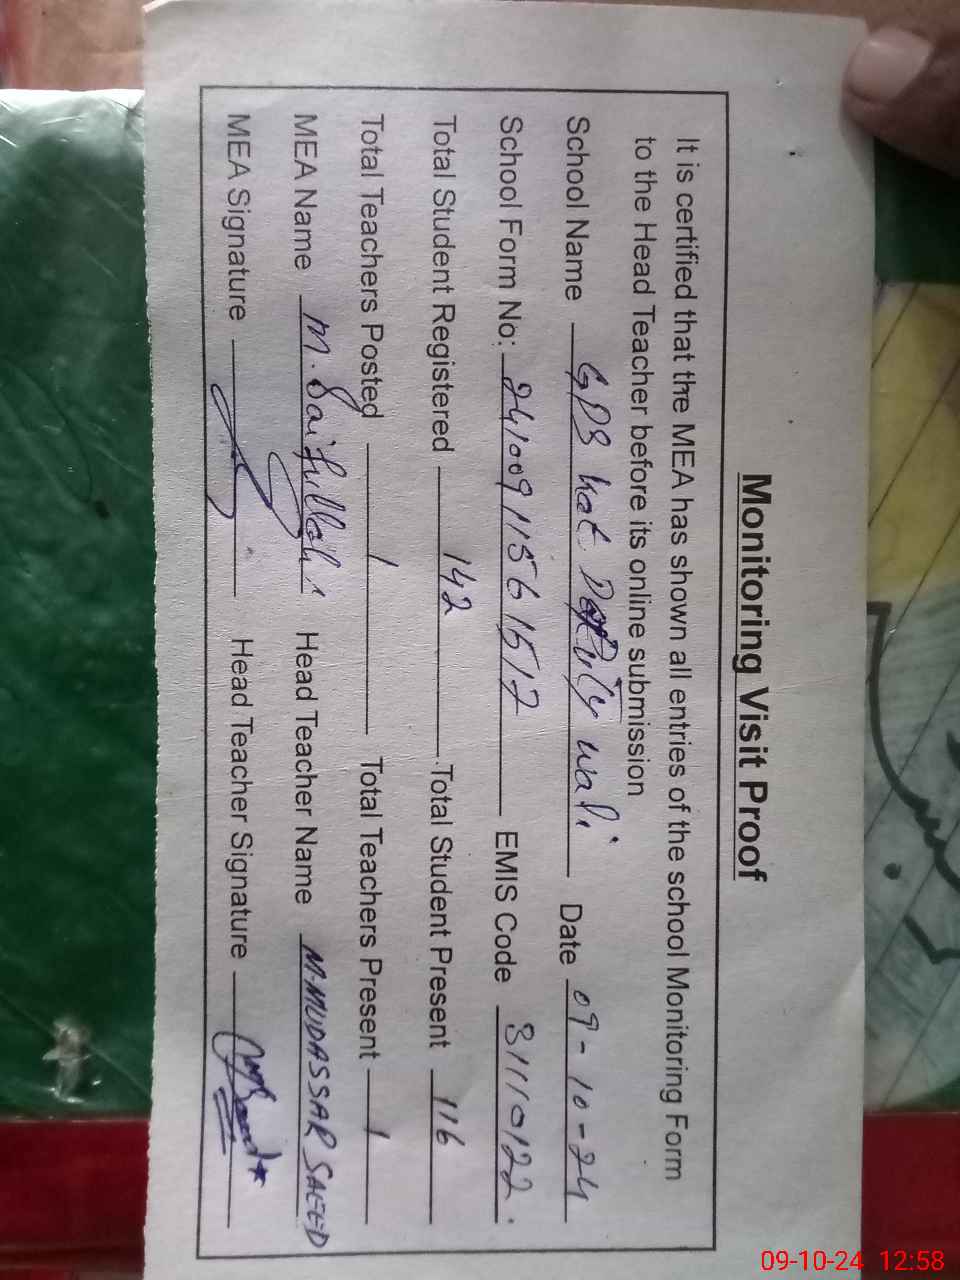 Monitoring Visit Proof
It is certified that the MEA has shown all entries of the school Monitoring Form
to the Head Teacher before its online submission
School Name GPS hat Deputy wali Date 09-10-24
School Form No: 24100911561512 EMIS Code 31110122
Total Student Registered 142 Total Student Present 116
Total Teachers Posted 1 Total Teachers Present 1
MEA Name M. Saifullah Head Teacher Name M. MUDASSAR SAEED
MEA Signature Head Teacher Signature
09-10-24 12:58